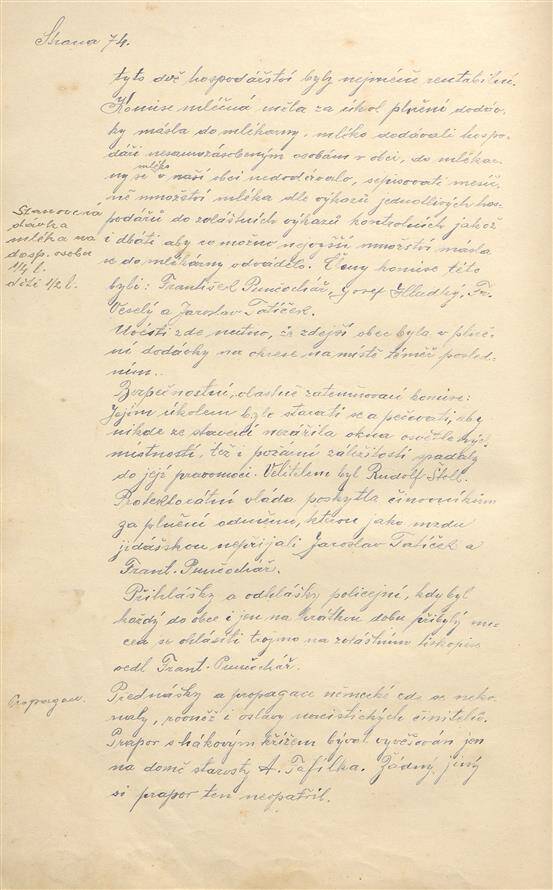 Strana 74.
tyto dvě hospodářství byly nejméně rentabilní.
Komise mléčná měla za úkol plnění dodáv-
ky másla do mlékarny, mléko dodávali hospo-
dáři nesamozásobeným osobám v obci, do mlékar-
ny se mléko v naší obci nedodávalo, sepisovati měsíč-
ně množství mléka dle výkazů jednotlivých hos-
podářů do zvláštních výkazů kontrolních jakož
i dbáti aby co možno největší množství másla
se do mlékarny odvádělo. Členy komise této
byli: František Punčochář, Josef Hladký, Fr.
Veselý a Jaroslav Tatíček.
Stanovená
dávka
mléka na
dosp. osobu
1/4 l.
děti 1/2 l.
Uvésti zde nutno, že zdejší obec byla v plně-
ní dodávky na okrese na místě téměř posled-
ním.
Bezpečnostní, vlastně zatemňovací komise:
Jejím úkolem bylo starati se a pečovati, aby
nikde ze stavení nezářila okna osvětlených
místností, též i požární záležitosti spadaly
do její pravomoci. Velitelem byl Rudolf Štoll.
Protektorátní vláda poskytla činovníkům
za plnění odměnu, kterou jako mzdu
jidášskou nepřijali Jaroslav Tatíček a
Frant. Punčochář.
Přihlášky a odhlášky policejní, kdy byl
každý do obce i jen na krátkou dobu přibylý nu-
cen se ohlásiti trojmo na zvláštním tiskopise
vedl Frant. Punčochář.
Propagace.
Přednášky a propagace německé zde se neko-
naly, rovněž i oslavy nacistických činitelů.
Prapor s hákovým křížem býval vyvěšován jen
na domě starosty A. Tafílka. Žádný jiný
si prapor ten neopatřil.